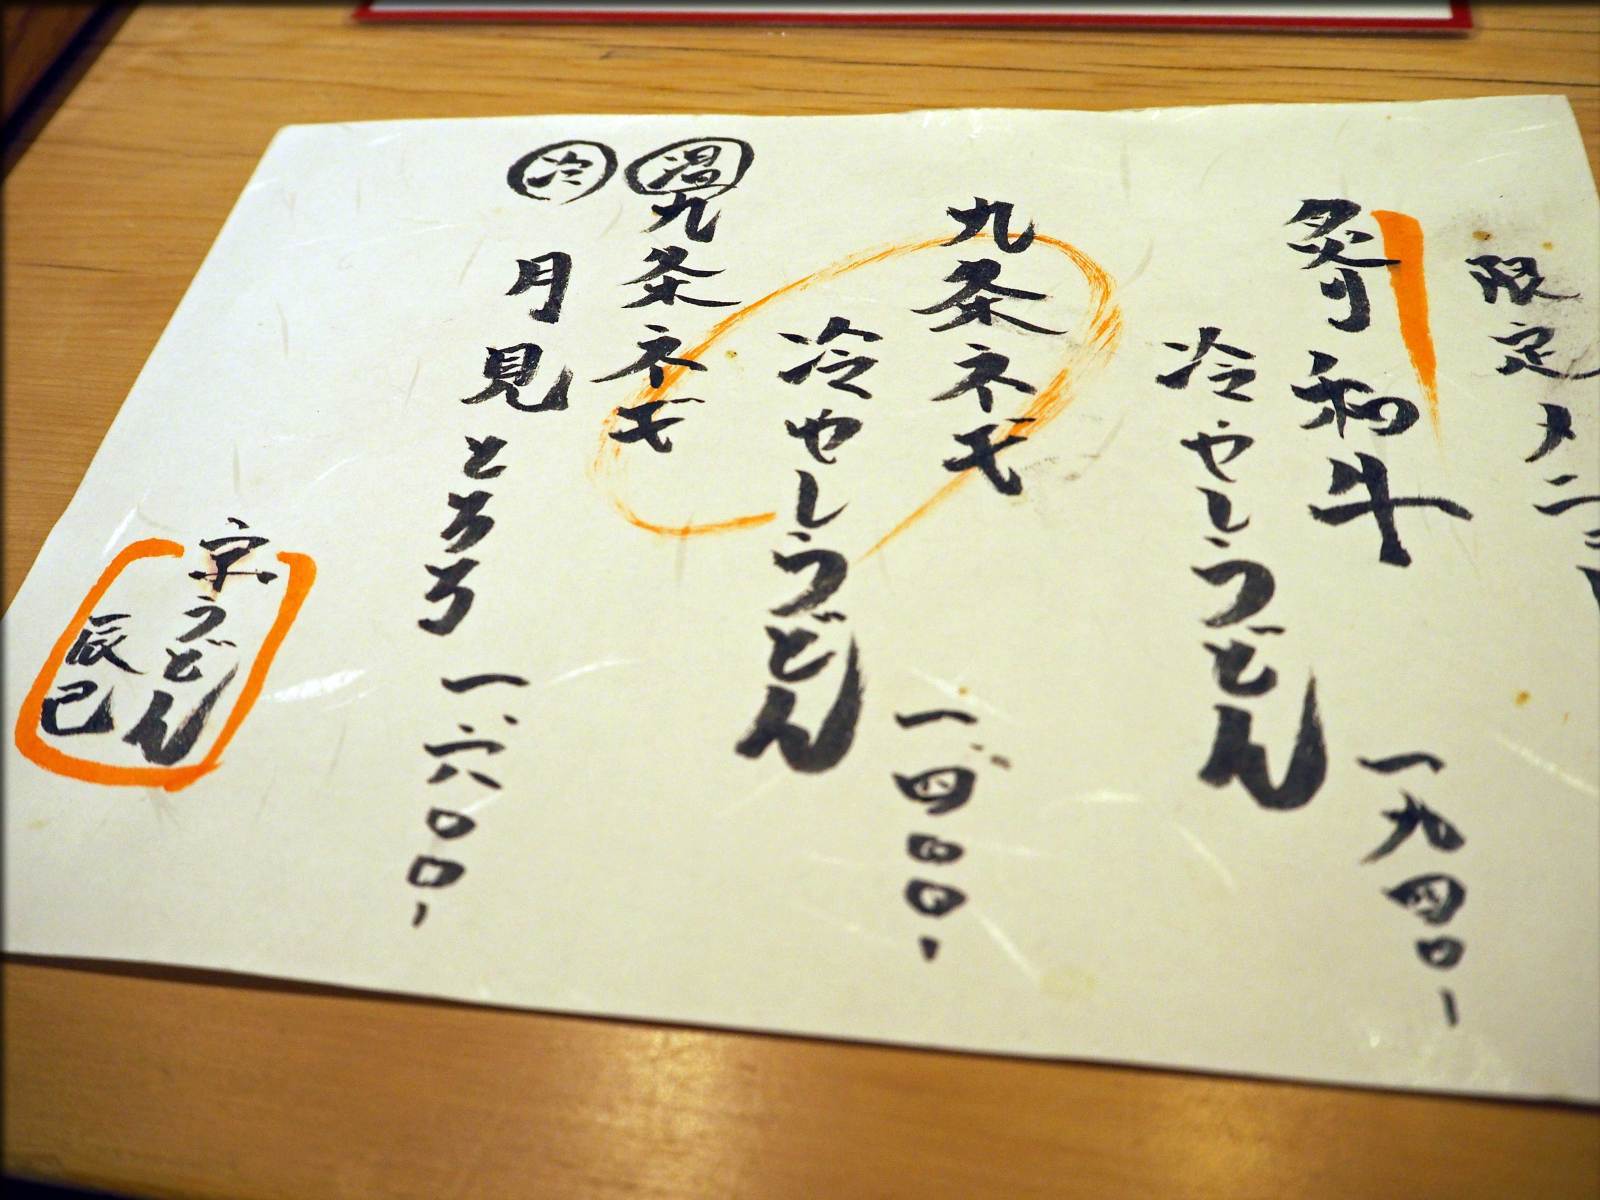 限定メニュー
炙り和牛
冷やしうどん
一九四〇-
九条ネギ
冷やしうどん
一、四〇〇-
温 九条ネギ
冷 月見とろろ
一、六〇〇-
京うどん
辰巳